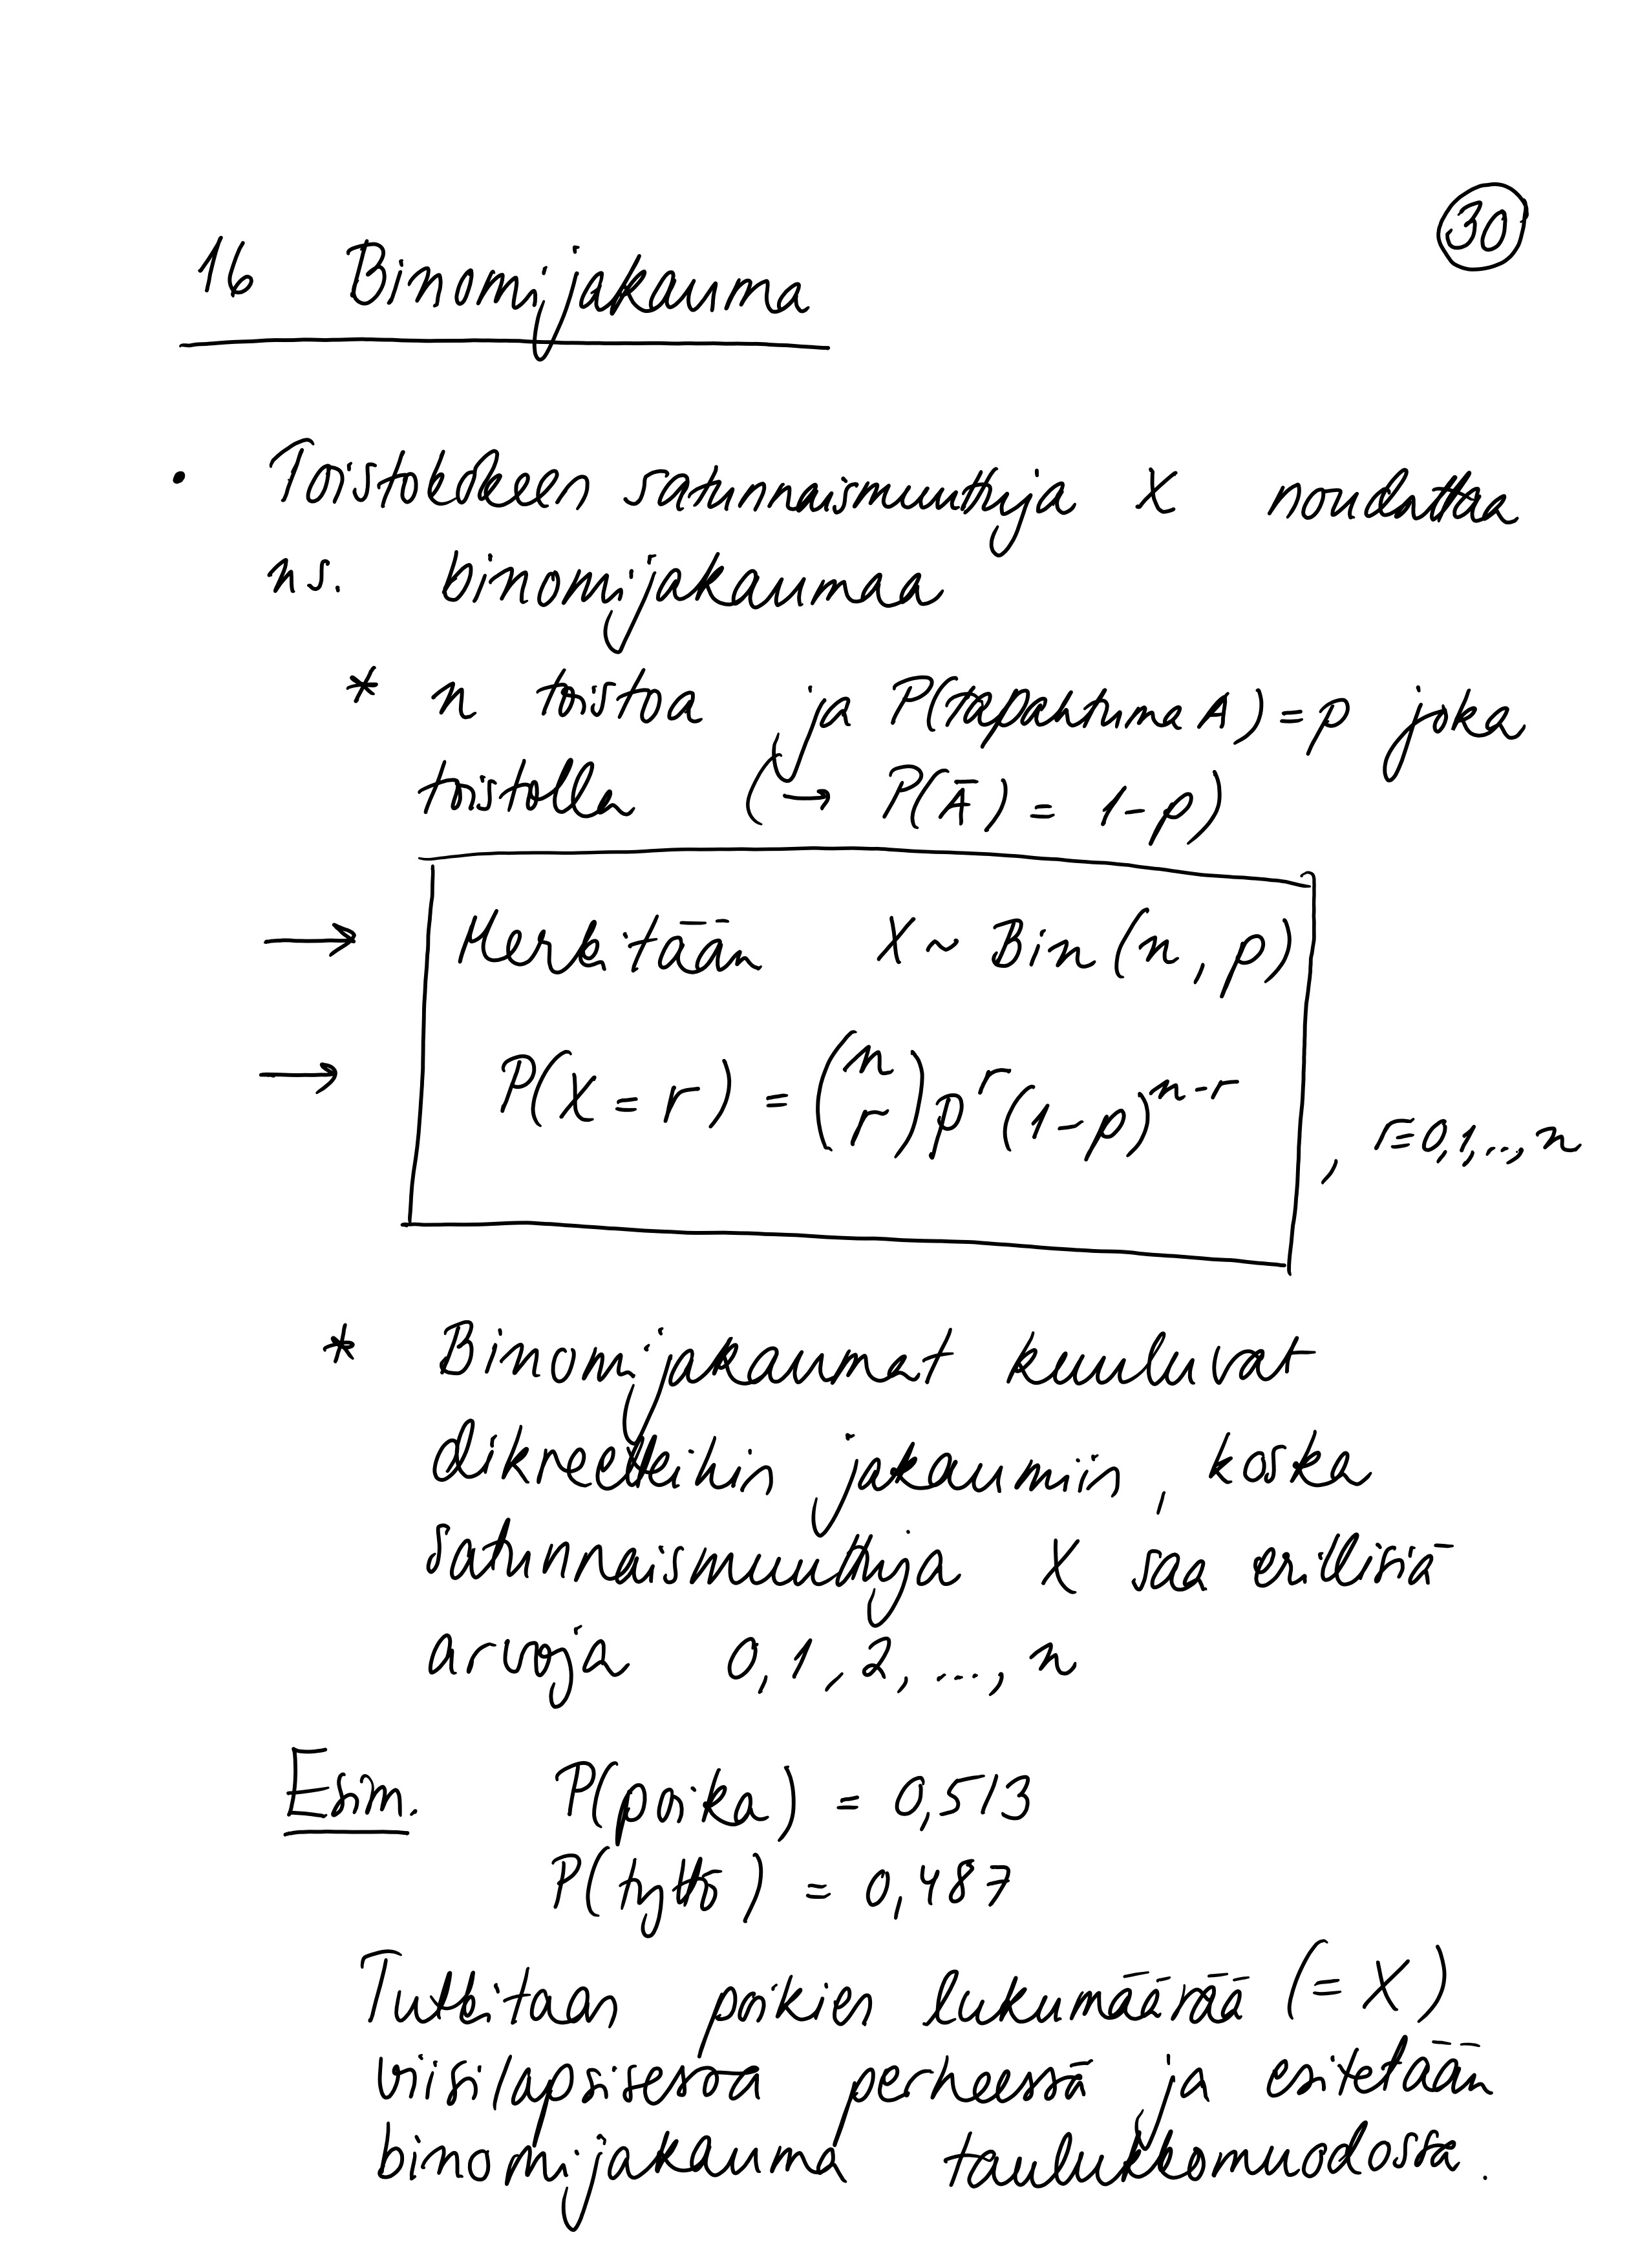 30
16 Binomijakauma
• Toistokokeen satunnaismuuttuja X noudattaa
ns. binomijakaumaa
* n toistoa ja P(tapahtuma A) = p joka
toistolla (→ P(Ā) = 1-p)
→ Merkitään X ~ Bin(n, p)
→ P(X = r) = (n r) p^r (1-p)^{n-r} , r=0,1,...,n
* Binomijakaumat kuuluvat
dikreetteihin jakaumiin, koska
satunnaismuuttuja X saa erillisiä
arvoja 0, 1, 2, ..., n
Esim. P(poika) = 0,513
P(tyttö) = 0,487
Tutkitaan poikien lukumäärää (= X)
viisilapsisessa perheessä ja esitetään
binomijakauma taulukkomuodossa.